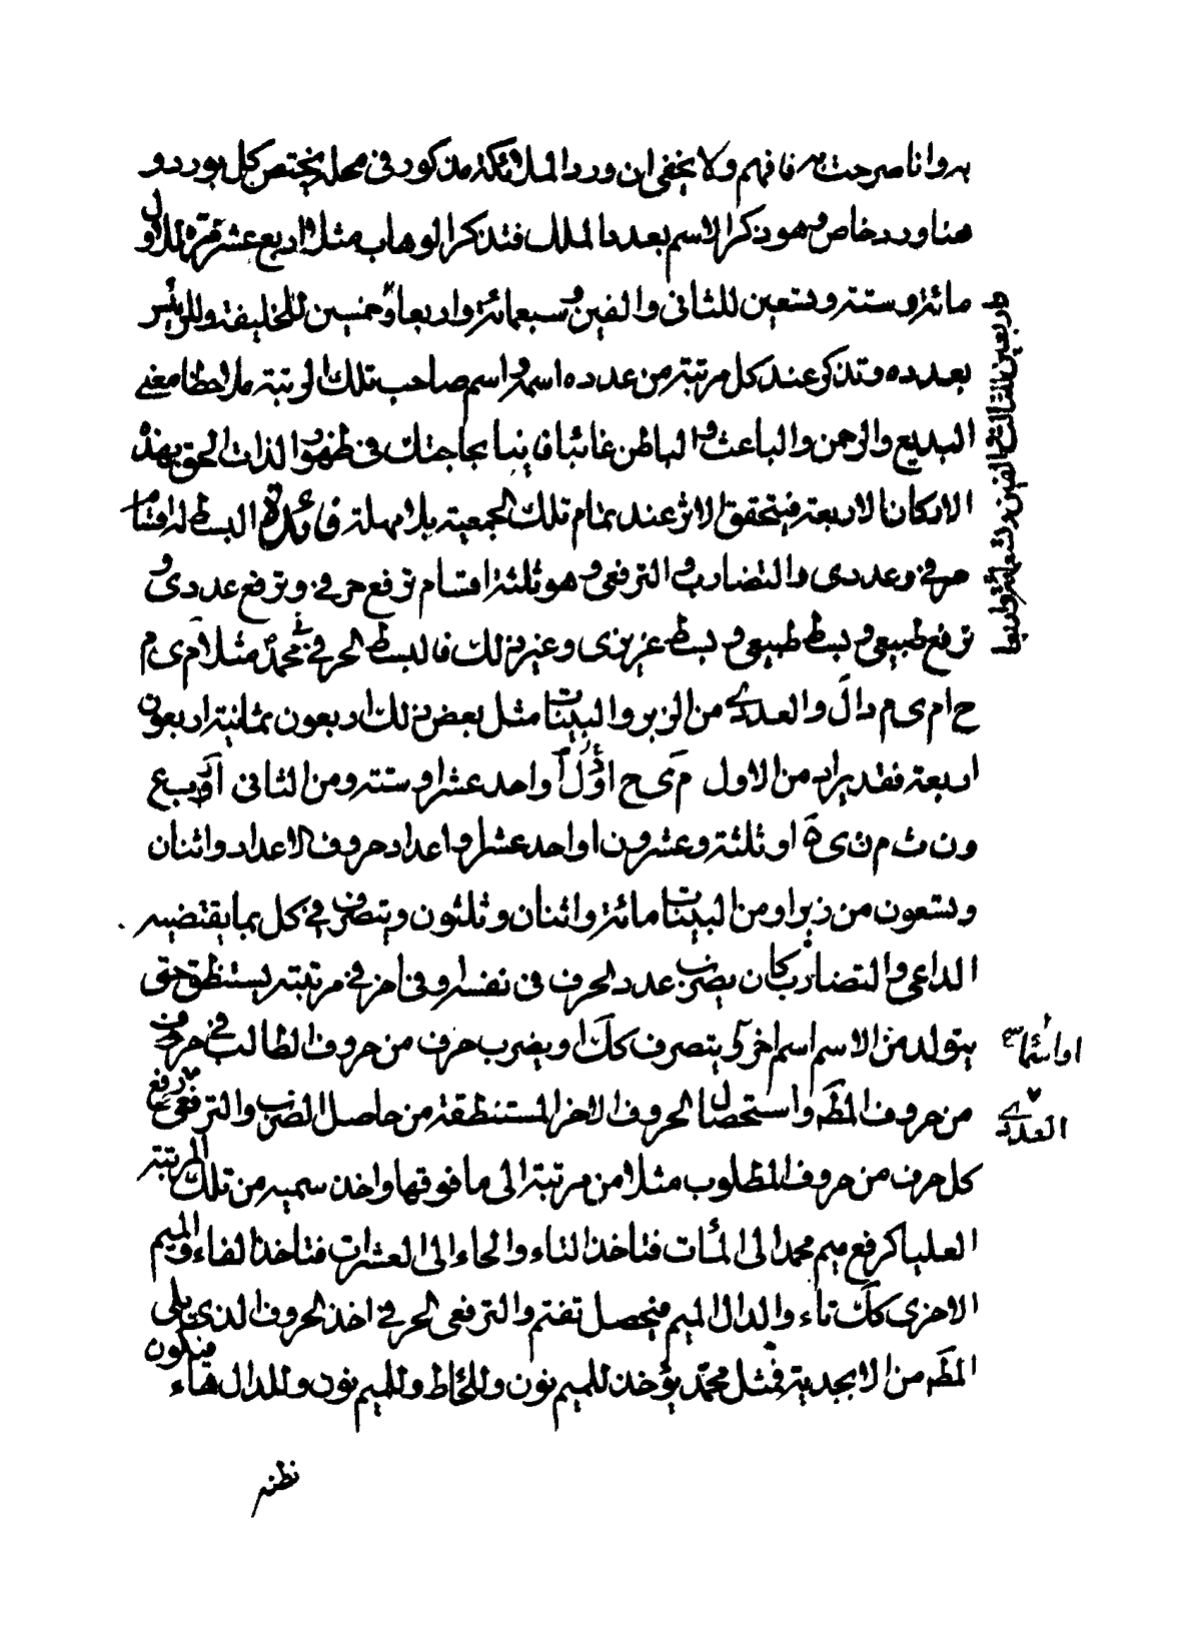 به وانا صرحت به فافهم ولا يخفى ان ورد الملائكة مذكور فى محله يختص كل بورد و
هنا ورد خاص وهو ذكر الاسم بعدد الملك فتذكر الوهاب مثلا اربع عشرة مرة للملك الاول
مائة وستة وتسعين للثانى والفين وسبعمائة واربعا وخمسين للخليفة وللرئيس
بعدده وتذكر عند كل مرتبة من عدده اسمه واسم صاحب تلك الرتبة ملاحظا معنى
البديع والرحمن والباعث والباطن غائبا فانيا بحاجتك فى ظهور الذات الحق بهذه
الاركان الاربعة فيتحقق الاثر عند تمام تلك الجمعية بلا مهلة فائدة البسط له اقسام
حرفى وعددى والتضارب والترفعى وهو ثلثة اقسام ترفع حرفى وترفع عددى و
ترفع طبيعى وبسط طبيعى وبسط عزيزى وغير ذلك فالبسط الحرفى فى محمد مثلا م ى م
ح ا م ى م دال والعددى من الزبر والبينات مثل بعض ذلك اربعون ثمانية اربعون
اربعة فقد يراد من الاول م ى ح ا د ل او احد عشر او ستة ومن الثانى ا ر ب ع
و ن ث م ن ى ة او ثلثة وعشرون او احد عشر او اعداد حروف الاعداد واثنان
وتسعون من زبر او من البينات مائة واثنان وثلثون ويتصرف فى كل بما يقتضيه
الداعى والتضارب كان يضرب عدد الحرف فى نفسه او فى اخر فى مرتبته يستنطق حتى
يتولد من الاسم اسم اخر ويتصرف كذلك او يضرب حرف من حروف الطالب فى حرف
من حروف المط واستحصال الحروف الاخر المستنطقة من حاصل الضرب والترفعى رفع
كل حرف من حروف المطلوب مثلا من مرتبة الى ما فوقها واخذ سميه من تلك المرتبة
العليا كرفع ميم محمد الى المئات فتاخذ التاء والحاء الى العشرات فتاخذ الفاء والميم
الاخرى كك تاء والدال الميم فيحصل تفتم والترفعى الحرفى اخذ الحروف الذى يلى
المط من الابجدية فمثل محمد يؤخذ للميم نون وللحاء ط وللميم نون وللدال هاء فيكون
نطنه
واربعين للثالث والفين وتسعمائة واربعا
او اسمائه
العددى